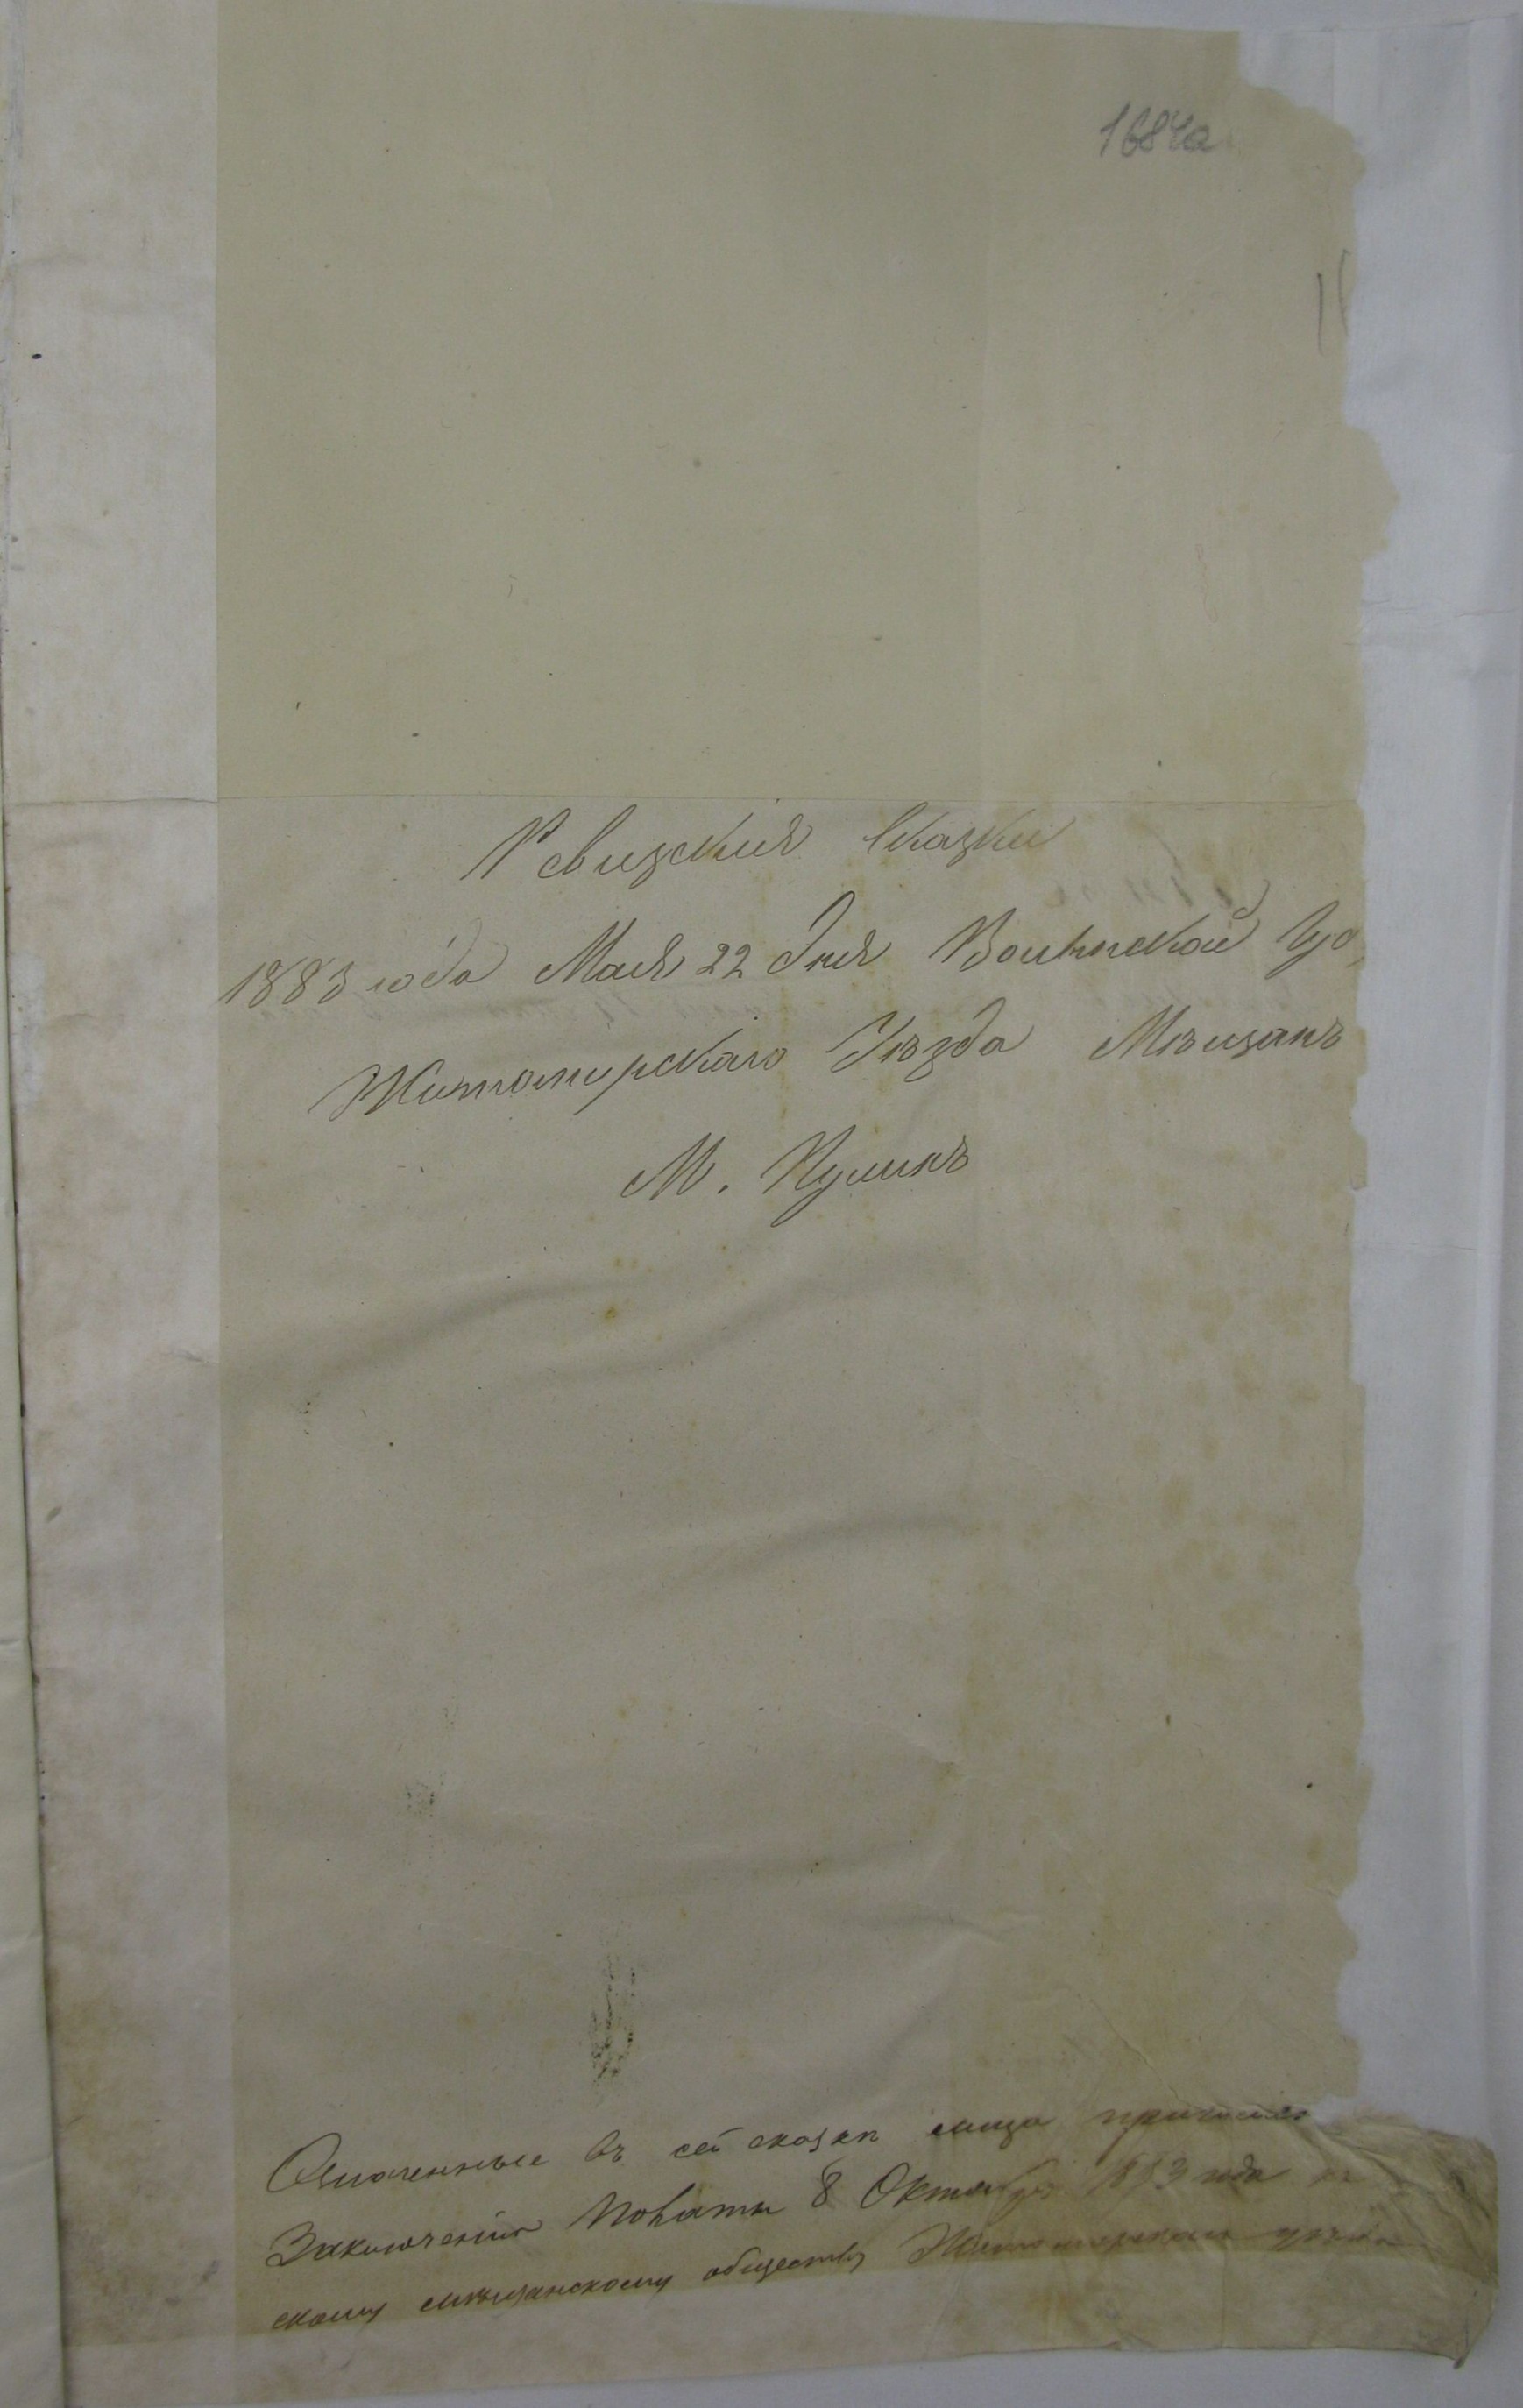 1684а
Ревизскія Сказки
1883 года Мая 22 дня Волынской Гу
Житомирскаго Уѣзда Мѣщанъ
М. Пулинъ
Означенные въ сей сказкѣ лица
Заключенія Палаты 8 Октября 1883 года къ
скому мѣщанскому обществу Житомирскаго уѣзда